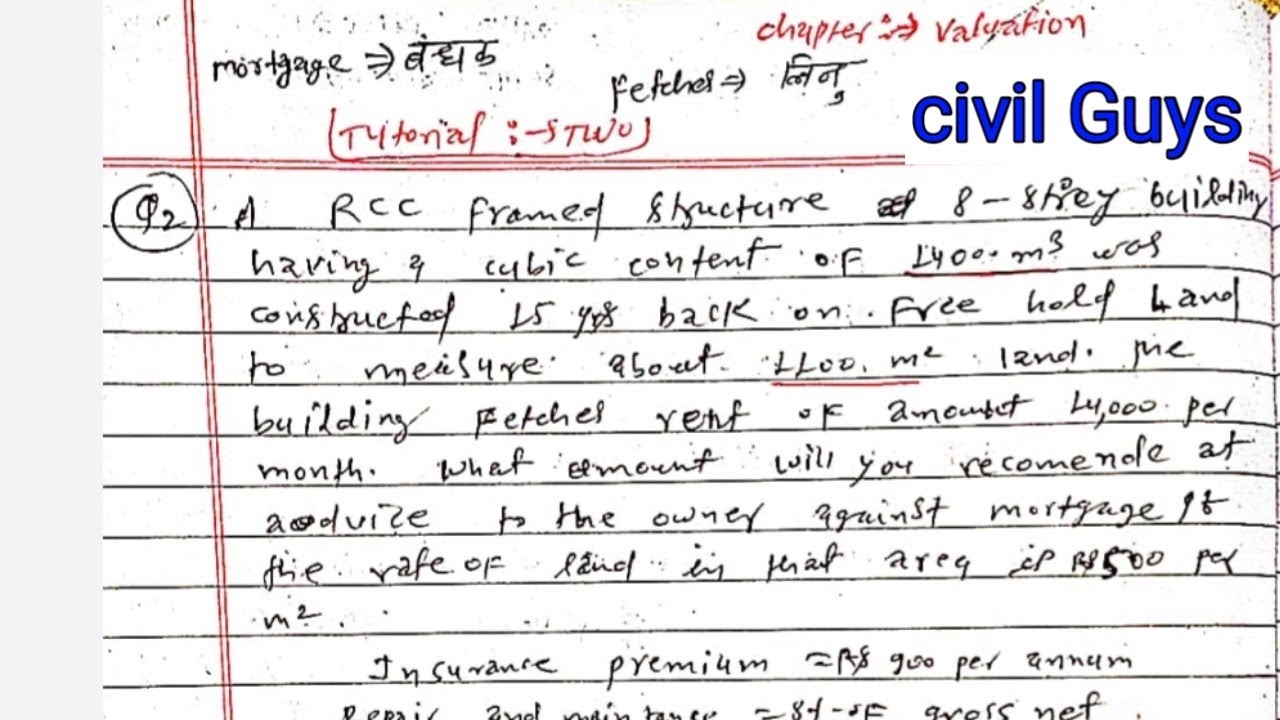 chapter :→ valuation
mortgage ⇒ बंधक
Fetches ⇒ लिनु
civil Guys
(Tutorial :-5TWO)
Q2 A RCC framed structure 8 - storey building
having a cybic content of 1400. m³ was
constructed 15 yrs back on. Free hold Land
to measure about 1100. m² land. the
building Fetches rent of amount 14,000 per
month. What amount will you recomende at
advize to the owner against mortgage If
the rate of land in that area is Rs 500 per
m².
Insurance premium = Rs 900 per annum
Repair and = 8% of gross net.